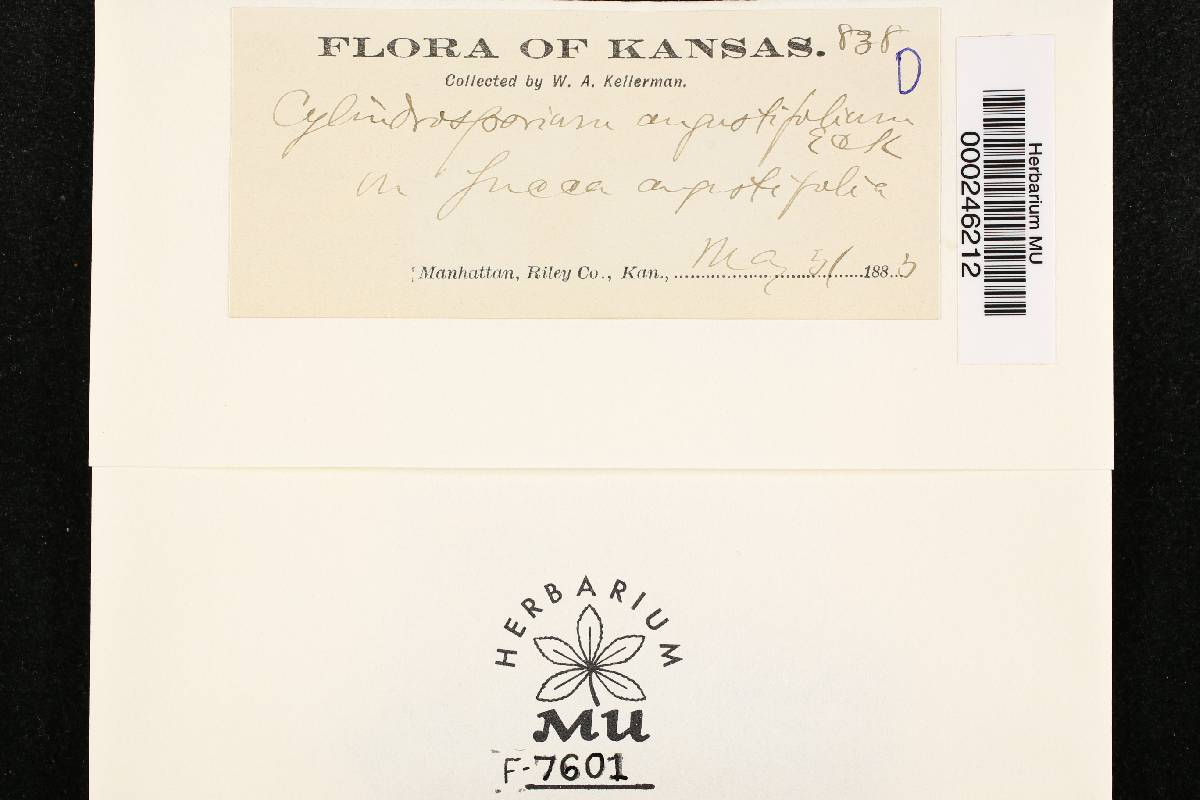 FLORA OF KANSAS. 838
D
Collected by W. A. Kellerman.
Cylindrosporium angustifolium
E & K
on Yucca angustifolia
Manhattan, Riley Co., Kan., May 31 1883
Herbarium MU
000246212
HERBARIUM
MU
F-7601